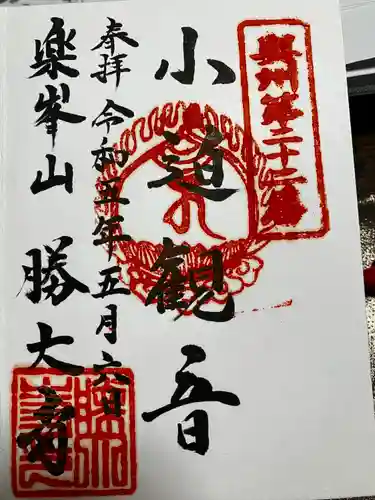 奥州第二十二番
小迫観音
奉拝 令和五年五月六日
楽峯山 勝大寺